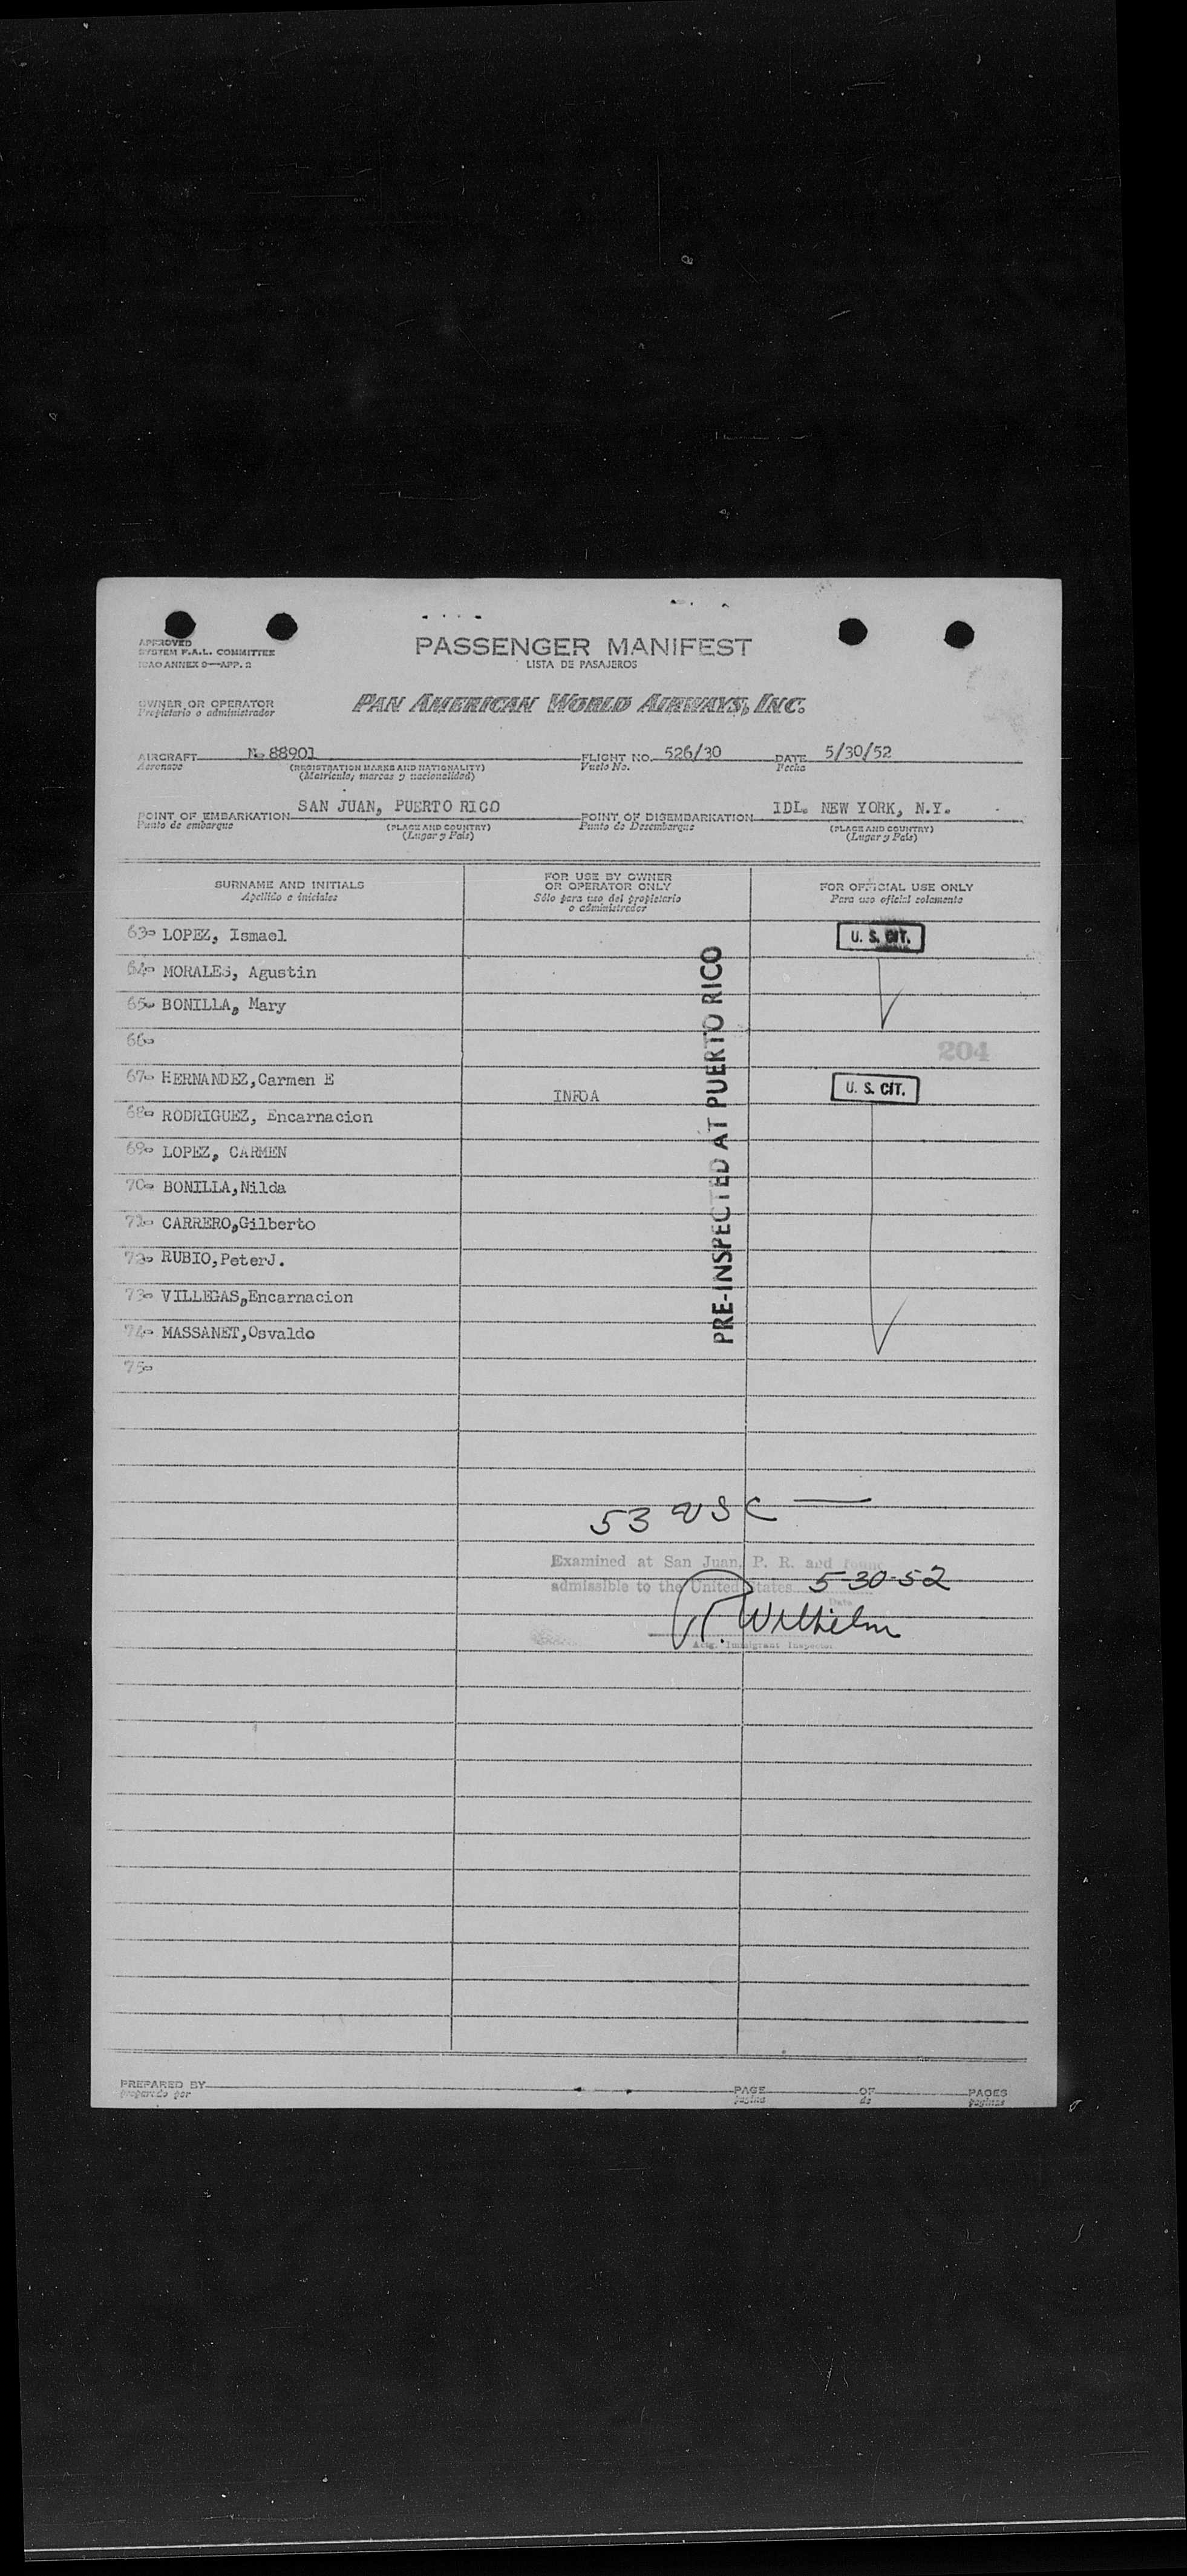 APPROVED
SYSTEM F.A.L. COMMITTEE
ICAO ANNEX 9—APP. 2
PASSENGER MANIFEST
LISTA DE PASAJEROS
OWNER OR OPERATOR
Propietario o administrador
PAN AMERICAN WORLD AIRWAYS, INC.
AIRCRAFT N-88901 FLIGHT NO. 526/30 DATE 5/30/52
Aeronave (REGISTRATION MARKS AND NATIONALITY) Vuelo No. Fecha
(Matricula, marcas y nacionalidad)
POINT OF EMBARKATION SAN JUAN, PUERTO RICO POINT OF DISEMBARKATION IDL. NEW YORK, N.Y.
Punto de embarque (PLACE AND COUNTRY) Punto de Desembarque (PLACE AND COUNTRY)
(Lugar y Pais) (Lugar y Pais)
SURNAME AND INITIALS FOR USE BY OWNER OR OPERATOR ONLY FOR OFFICIAL USE ONLY
Apellido e iniciales Sólo para uso del propietario o administrador Para uso oficial solamente
63- LOPEZ, Ismael U. S. CIT.
64- MORALES, Agustin
65- BONILLA, Mary
66-
204
67- HERNANDEZ,Carmen E U. S. CIT.
INFOA
68- RODRIGUEZ, Encarnacion
69- LOPEZ, CARMEN
70- BONILLA,Nilda
71- CARRERO,Gilberto
72- RUBIO,PeterJ.
73- VILLEGAS,Encarnacion
74- MASSANET,Osvaldo
75-
PRE-INSPECTED AT PUERTO RICO
53 USC
Examined at San Juan, P. R. and found
admissible to the United States 5-30-52
Date
R. Wilhelm
Actg. Immigrant Inspector
PREPARED BY PAGE OF PAGES
preparado por pagina de paginas